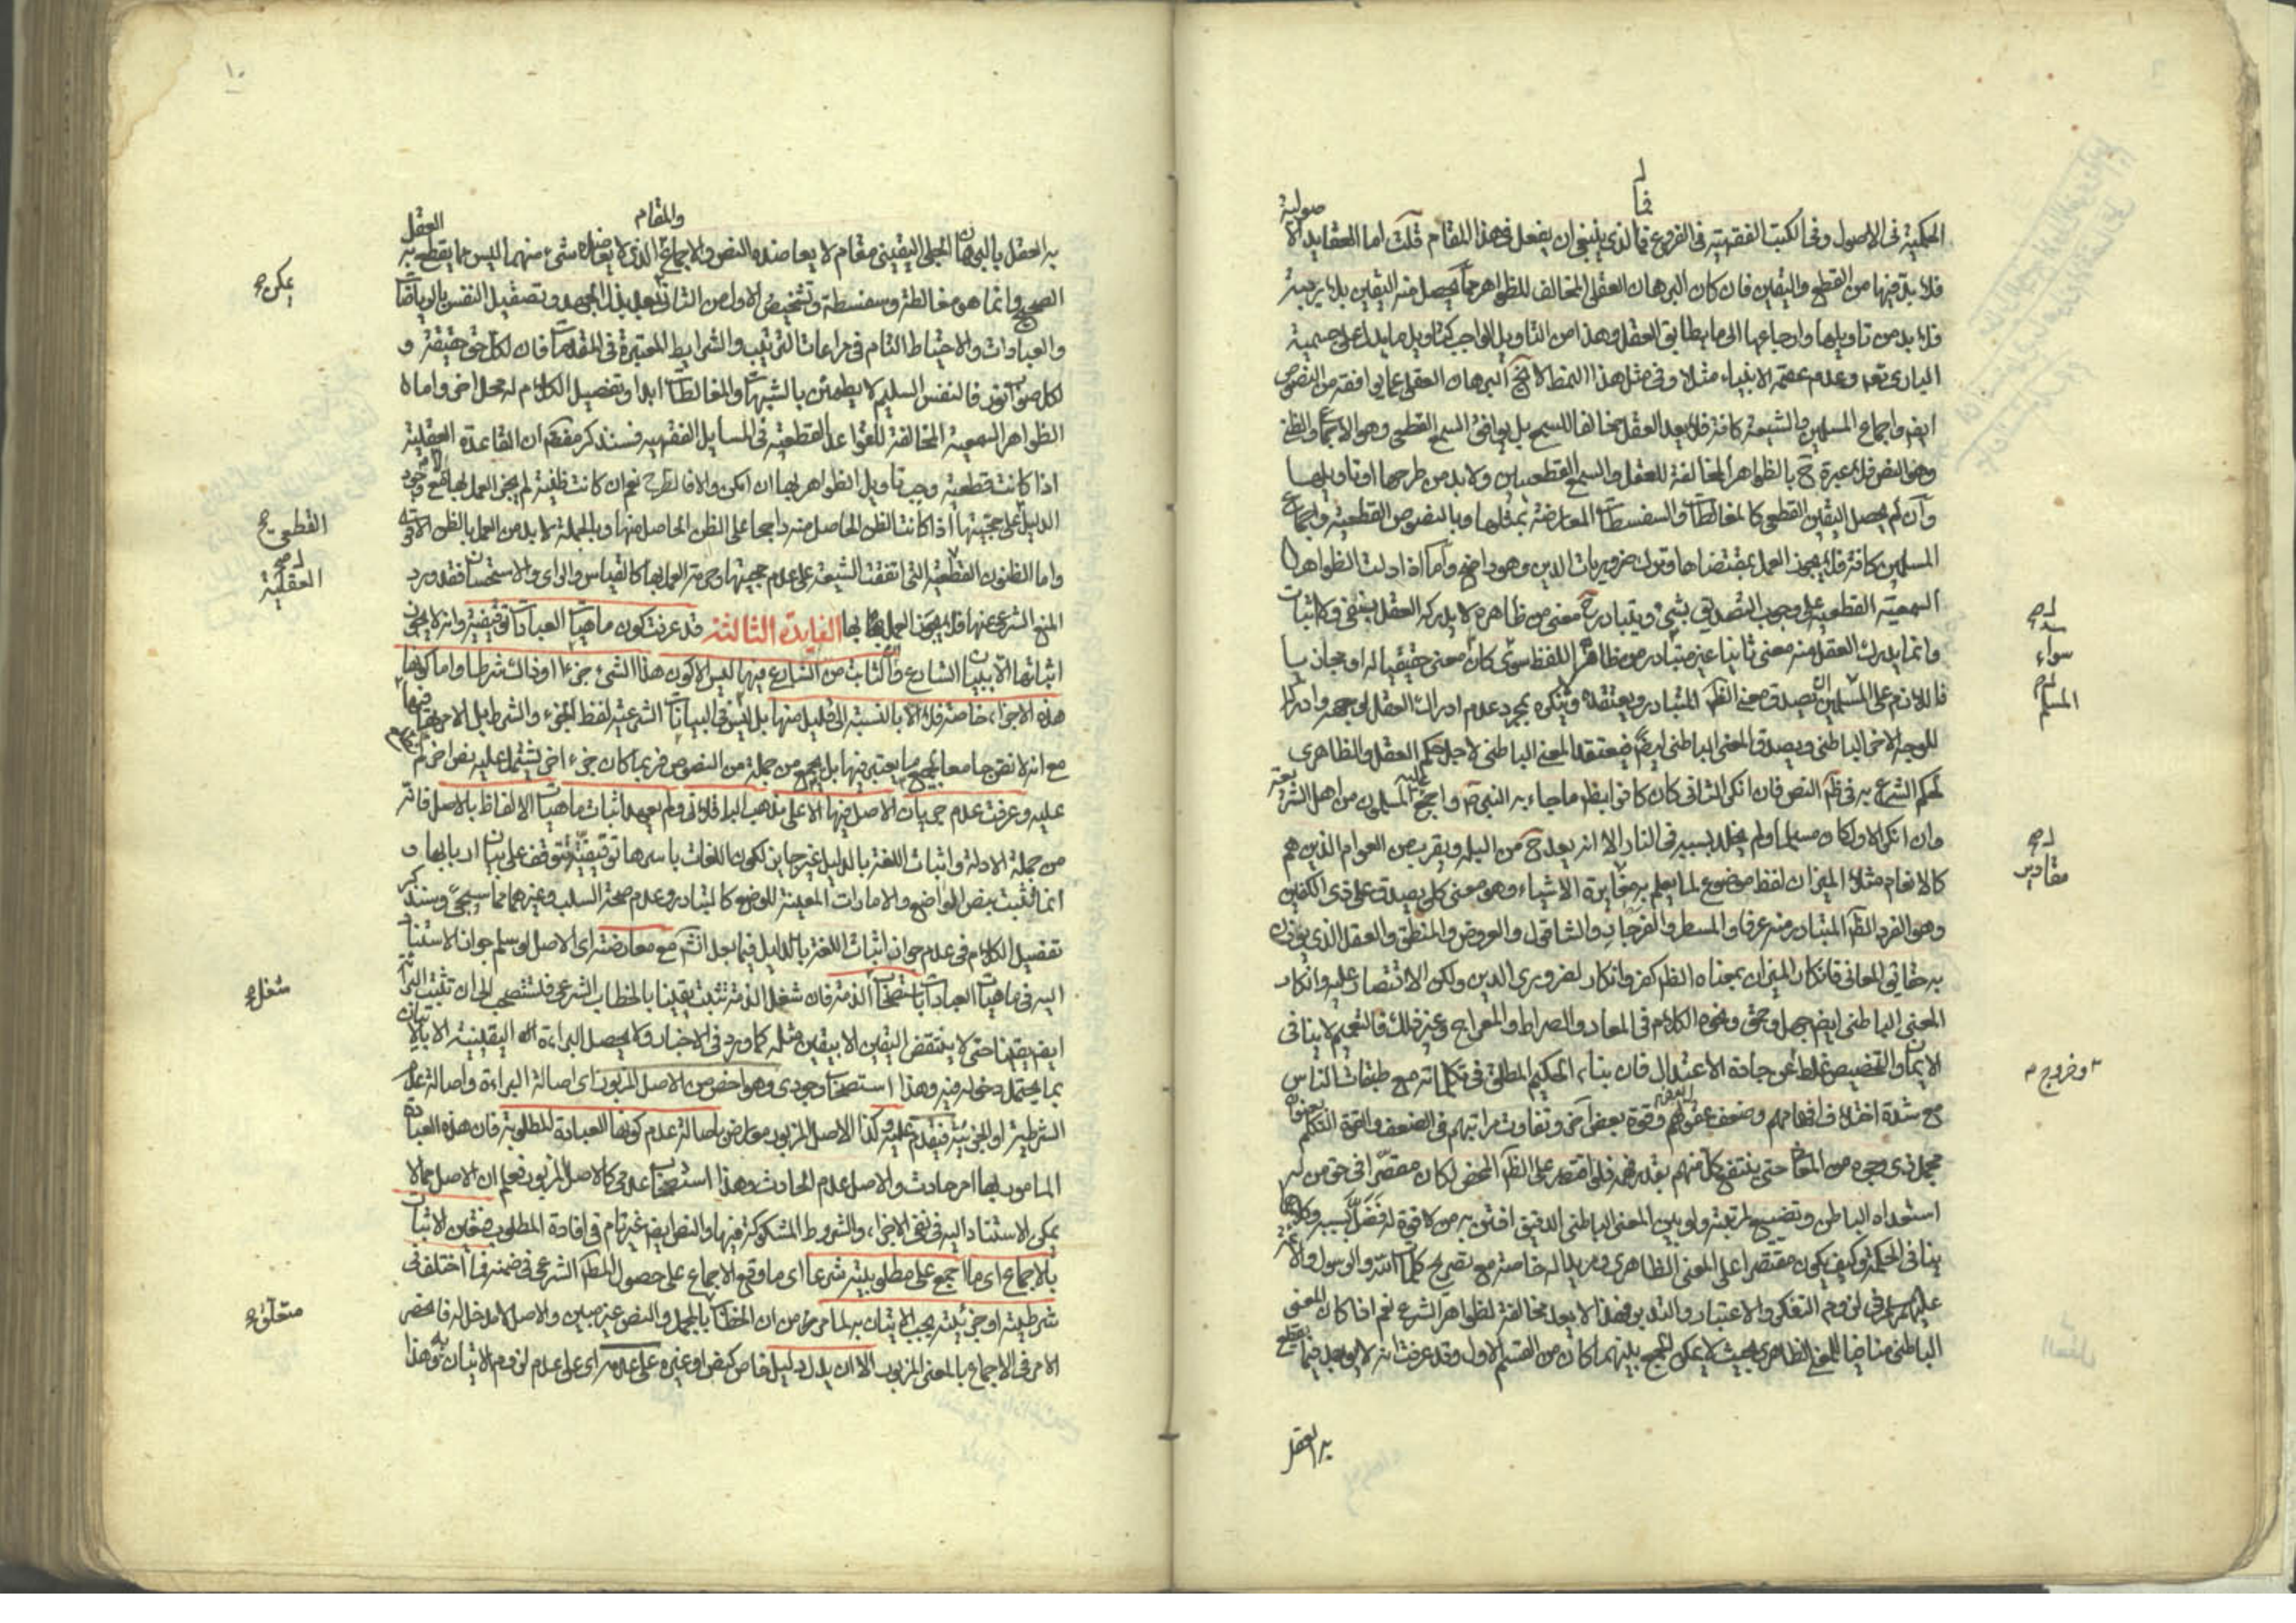 الحكمية فى الاصول وفى الكتب الفقهية فى الفروع فما الذى ينبغى ان يفعل فى هذا المقام قلت اما العقايد الا
صولية
فلا بد فيها من القطع واليقين فان كان البرهان العقلى المخالف للظواهر مما يحصل منه اليقين بلا ريبة
فلا بد من تاويلها وارجاعها الى ما يطابق العقل وهذا من التاويل الواجب كتاويل ما يدل على جسمية
البارى تعه وعدم عصمة الانبياء مثلا وفى مثل هذا النمط لا البرهان العقلى عما يوافقه من النصوص
ايضا واجماع المسلمين والشيعة كافة فلا يعد العقل مخالفا للسمع بل يوافق السمع القطعى وهو الاجماع
وهو النص فلا عبرة ح بالظواهر المخالفة للعقل والسمع القطعيين ولا بد من طرحها او تاويلها
وان لم يحصل اليقين القطعى كالمغالطات والسفسطات المعارضة بمثلها وبالنصوص القطعية واجماع
المسلمين كافة فلا يجوز العمل بمقتضاها وترك ضروريات الدين وهو واضح واما اذا دلت الظواهر
السمعية القطعية على وجوب التصديق بشئ ويتبادر معنى من ظاهره لا يدركه العقل بنفى ولا اثبات
وانما يدرك العقل منه معنى ثانيا غير متبادر من ظاهر اللفظ سوى كان معنى حقيقيا له او مجازيا
سواء
فاللازم على المسلمين ان يصدق معنى المتبادر ويعتقده ولا ينكره بمجرد عدم ادراك العقل لوجهه وادراكه
المسلم
للوجه الاخر الباطنى ويصدق المعنى الباطنى ايضا فيعتقد المعنى الباطنى لاجل حكم العقل والظاهرى
لحكم الشرع به فى النص فان انكر الثانى كان كافرا ما جاء به النبى واجمع عليه المسلمون من اهل الشريعة
وان انكر الاول كان مسلما ولم يخلد بسببه فى النار الا انه يعد ح من البله ويقرب من العوام الذين هم
كالانعام مثلا الميزان لفظ موضوع لما يعلم به مقايرة الاشياء وهو معنى كلى يصدق على ذى الكفتين
مقادير
وهو الفرد المتبادر منه عرفا والمسطر والفرجار والشاقول والعروض والمنطق والعقل الذى يوزن
به حقايق المعانى فانكار الميزان بمعناه كفر وانكار لضرورى الدين ولكن الاقتصار عليه وانكار
المعنى الباطنى ايضا جهل وحمق ونحوه الكلام فى المعاد والصراط والمعراج وغير ذلك فالتعميم لا ينافى
الايمان والتخصيص غلط عن جادة الاعتدال فان بناء الحكيم المطلق فى تكلماته مع طبقات الناس
وخروج
مع شدة اختلاف افهامهم وضعف عقولهم وقوة بعض اخر وتفاوت مراتبهم فى الضعف والقوة التكلم
مجمل ذى وجوه من المعانى حتى ينتفع كل منهم بقدر فهمه فلو اقتصر على المحض لكان مقصرا فى حق من له
استعداد الباطن وتضييع لمرتبته ولو بين المعنى الباطنى الدقيق افتتن به من لا قوة له فضل بسببه وكلاهما
ينافى الحكمة وكيف يكون مقتصرا على المعنى الظاهرى ومريدا له خاصة مع تصريح كلمات الله والرسول والائمة
عليهم السلام فى لزوم التفكر والاعتبار والتدبر وهذا لا يعد مخالفة لظواهر الشرع نعم اذا كان المعنى
الباطنى مناقضا للمعنى الظاهرى بحيث لا يمكن الجمع بينهما كان من القسم الاول وقد عرفت انه لا يوجد فيما يقطع
به العقل
١٠
به العقل بالبرهان الجلى اليقينى مقام لا يعاضده النص والاجماع والمقام الذى لا يعاضده شئ منهما ليس مما يقطع به العقل
الصحيح وانما هو مغالطة وسفسطة وتشخيص الاول من الثانى بعد بذل الجهد وتصقيل النفس بالرياضات
يمكن
والعبادات والاحتياط التام فى مراعات الترتيب والشرايط المعتبرة فى المقدمات فان لكل حق حقيقة و
لكل صواب نور فالنفس السليم لا يطمئن بالشبهات والمغالطات ابدا وتفصيل الكلام له محل اخر واما
الظواهر السمعية المخالفة للقواعد القطعية فى المسايل الفقهيه فسنذكر مفصلا ان القاعدة العقلية
اذا كانت قطعية وجب تاويل الظواهر لها ان امكن والا فالطرح نعم ان كانت ظنية لم يجز العمل بها مع وجود
الدليل على حجيتها اذا كانت الظن الحاصل منه راجحا على الظن الحاصل منها وبالجملة لا بد من العمل بالظن الاقوى
القطعى
واما الظنون القطعية التى اتفقت الشيعة على عدم حجيتها وحرمة العمل بها كالقياس والراى والاستحسان فقد ورد
العقلية
المنع الشرعى عنها فلا يجوز العمل بها الفايدة الثالثة قد عرفت كون ماهيات العبادات توقيفية وانه لا يجوز
اثباتها الا ببيان الشارع والثابت من الشارع فيها ليس الا كون هذا الشئ جزءا او ذاك شرطا واما كونها
هذه الاجزاء خاصة فلا الا بالنسبة الى قليل منها بل ليس فى البيانات الشرعية لفظ الجزء والشرط بل الامر بها فيها
مع انه لا نص جامعا لجميع ما يعتبر فيها بل يجمع من جملة من النصوص فربما كان جزء اخر يشتمل عليه نص اخر لم
عليه وعرفت عدم جريان الاصل فيها الا على مذهب الباقلانى ولم يعهد اثبات ماهيات الالفاظ بالاصل فانه
من جملة الادلة واثبات اللغة بالدليل غير جايز لكون اللغات باسرها توقيفية تتوقف على بيان اربابها و
انما تثبت بنص الواضع والامارات المعينة للوضع كالتبادر وعدم صحة السلب وغيرهما مما سيجئ وسنذكر
تفصيل الكلام فى عدم جواز اثبات اللغة بالدليل فيما بعد مع معارضته اى الاصل لو سلم جواز الاستناد
اليه فى ماهيات العبادات باستصحاب الذمة فان شغل الذمة تثبت يقينا بالخطاب الشرعى فتستصحب الى ان تثبت البرائة
شغل
ايضا يقينا حتى لا ينتقض اليقين الا بيقين مثله كما ورد فى الاخبار ولا يحصل البراءة اليقينية الا بالاتيان
بما يحتمل دخله فيه وهذا استصحاب وجودى وهو اخص من الاصل المزبور اى اصالة البراءة واصالة عدم
الشرطية او الجزئية فيقدم عليه وكذا الاصل المزبور معارض باصالة عدم كونها العبادة المطلوبة فان هذه العبادة
المامور بها امر حادث والاصل عدم الحادث وهذا استصحاب عدمى كالاصل المزبور فعلم ان الاصل مما لا
يمكن الاستناد اليه فى نفى الاجزاء والشروط المشكوكة فيها والنص ايضا غير تام فى افادة المطلوب فتعين الاثبات
بالاجماع اى ما اجمع على مطلوبيته شرعا اى ما وقع الاجماع على حصول الشرعى فى ضمنه فما اختلف فى
شرطيته او جزئيته يجب الاتيان به لما مر من ان الخطاب بالمجمل والنص غير مبين والاصل لا مدخل له فانحصر
متعلق
الامر فى الاجماع بالمعنى المزبور الا ان يدل دليل خاص كنص او غيره على عدمه اى على عدم لزوم الاتيان به وهذا